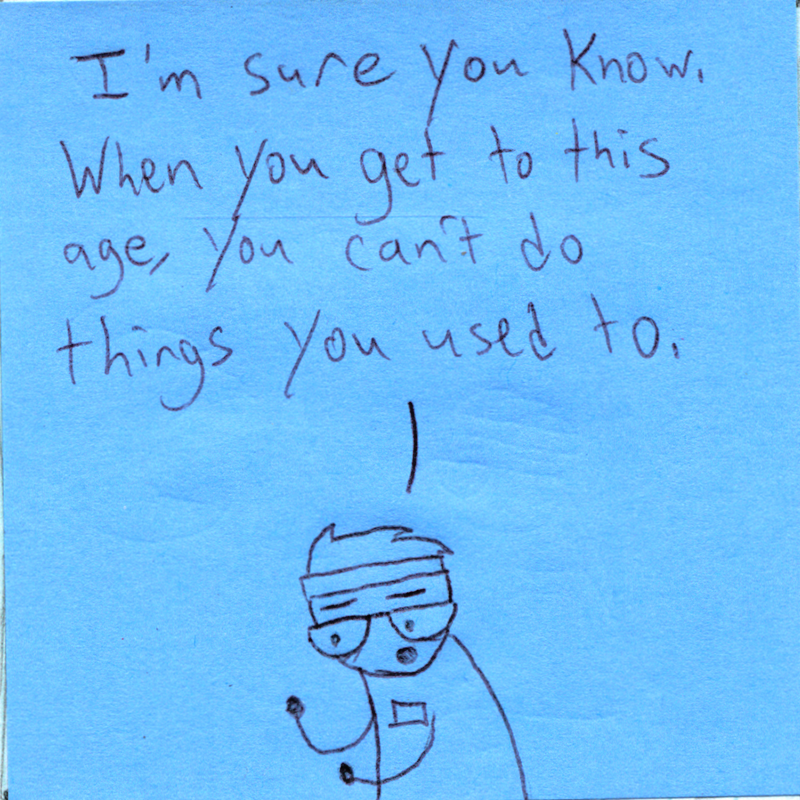 I'm sure you know.
When you get to this
age, you can't do
things you used to.